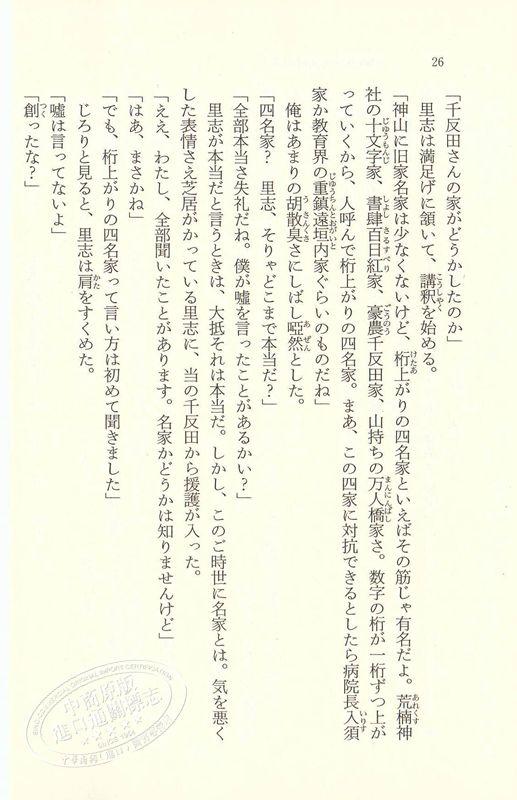 26
「千反田さんの家がどうかしたのか」
里志は満足げに頷いて、講釈を始める。
「神山に旧家名家は少なくないけど、桁上がりの四名家といえばその筋じゃ有名だよ。荒楠神
社の十文字家、書肆百日紅家、豪農千反田家、山持ちの万人橋家さ。数字の桁が一桁ずつ上が
っていくから、人呼んで桁上がりの四名家。まあ、この四家に対抗できるとしたら病院長入須
家か教育界の重鎮遠垣内家ぐらいのものだね」
俺はあまりの胡散臭さにしばし啞然とした。
「四名家？　里志、そりゃどこまで本当だ？」
「全部本当さ失礼だね。僕が嘘を言ったことがあるかい？」
里志が本当だと言うときは、大抵それは本当だ。しかし、このご時世に名家とは。気を悪く
した表情さえ芝居がかっている里志に、当の千反田から援護が入った。
「ええ、わたし、全部聞いたことがあります。名家かどうかは知りませんけど」
「はあ、まさかね」
「でも、桁上がりの四名家って言い方は初めて聞きました」
じろりと見ると、里志は肩をすくめた。
「嘘は言ってないよ」
「創ったな？」
中商原版
進口通關標志